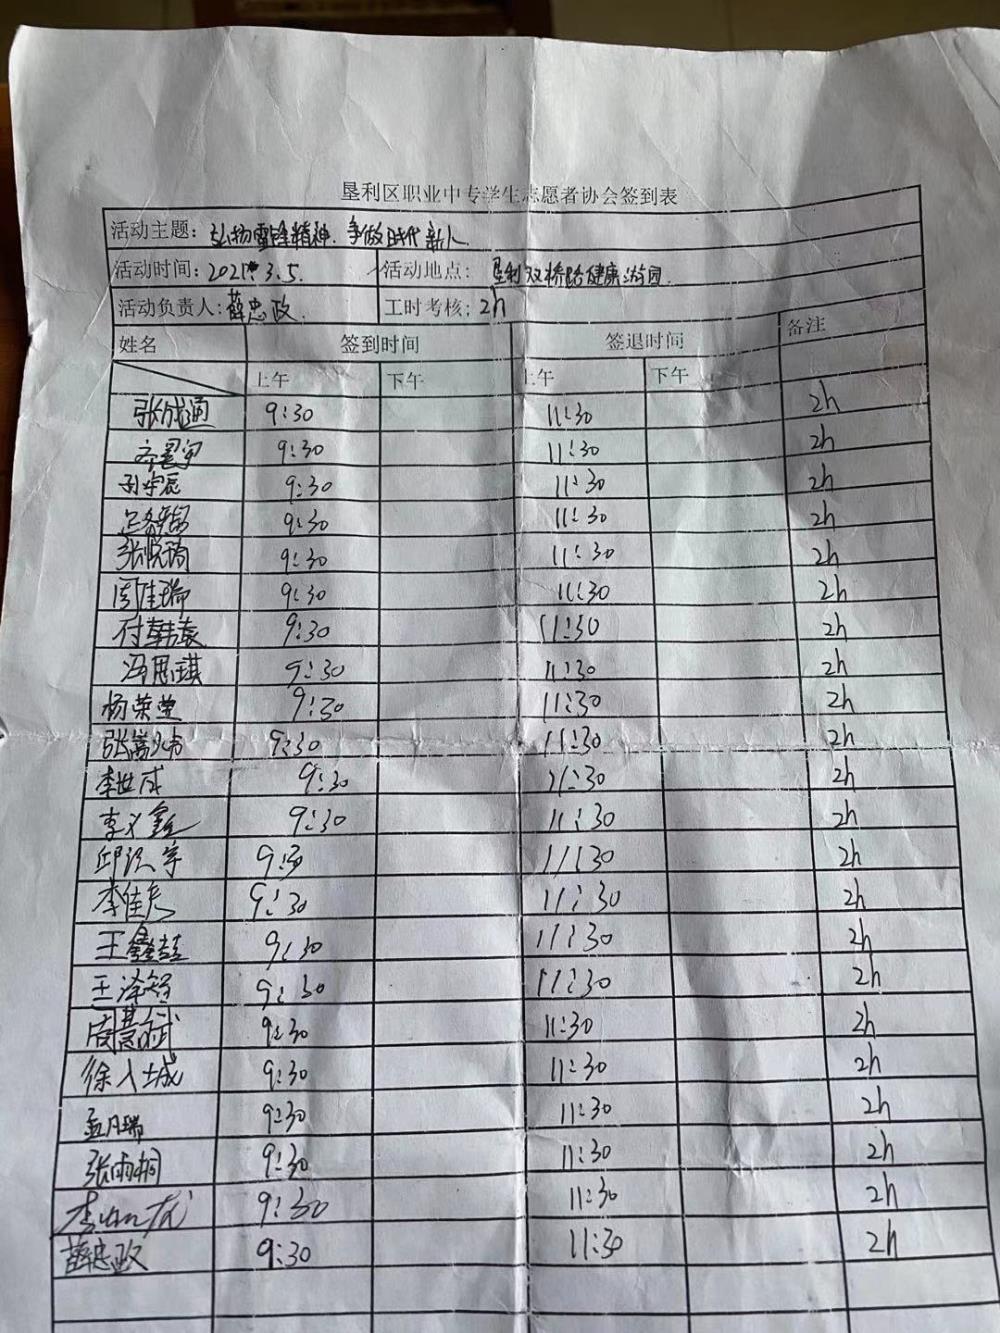 垦利区职业中专学生志愿者协会签到表
活动主题：弘扬雷锋精神、争做时代新人
活动时间：2021.3.5. 活动地点：垦利双桥路健康游园.
活动负责人：薛忠政. 工时考核：2h
姓名 签到时间 签退时间 备注
上午 下午 上午 下午
张成通 9:30 11:30 2h
齐晨宇 9:30 11:30 2h
孙宇辰 9:30 11:30 2h
9:30 11:30 2h
张悦 9:30 11:30 2h
周佳瑞 9:30 11:30 2h
付韩 9:30 11:30 2h
冯思琪 9:30 11:30 2h
杨荣莹 9:30 11:30 2h
张 9:30 11:30 2h
李世成 9:30 11:30 2h
李义鑫 9:30 11:30 2h
邱 宇 9:30 11:30 2h
李佳 9:30 11:30 2h
王鑫喆 9:30 11:30 2h
王泽 9:30 11:30 2h
斌 9:30 11:30 2h
徐入城 9:30 11:30 2h
孟凡瑞 9:30 11:30 2h
张雨桐 9:30 11:30 2h
李 龙 9:30 11:30 2h
薛忠政 9:30 11:30 2h